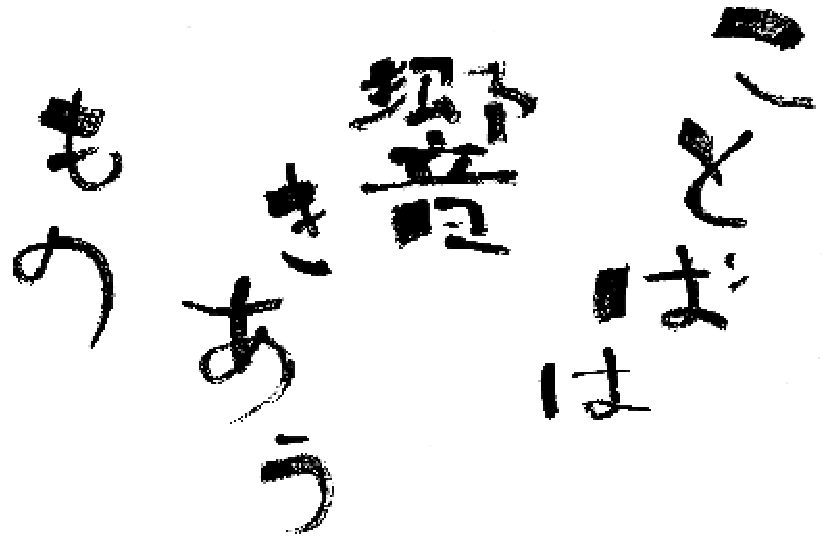 ことばは
響きあう
もの